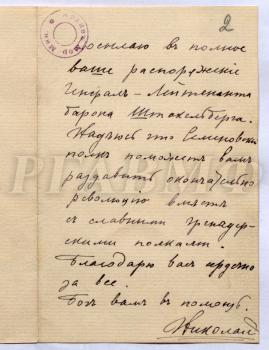 2
Посылаю въ полное
ваше распоряженіе
Генералъ-Лейтенанта
барона Штакельберга.
Надѣюсь что Семеновскій
полкъ поможетъ вамъ
раздавить окончательно
революцію вмѣстѣ
съ славными гренадер-
скими полками.
Благодарю васъ сердечно
за все.
Богъ вамъ въ помощь.
Николай